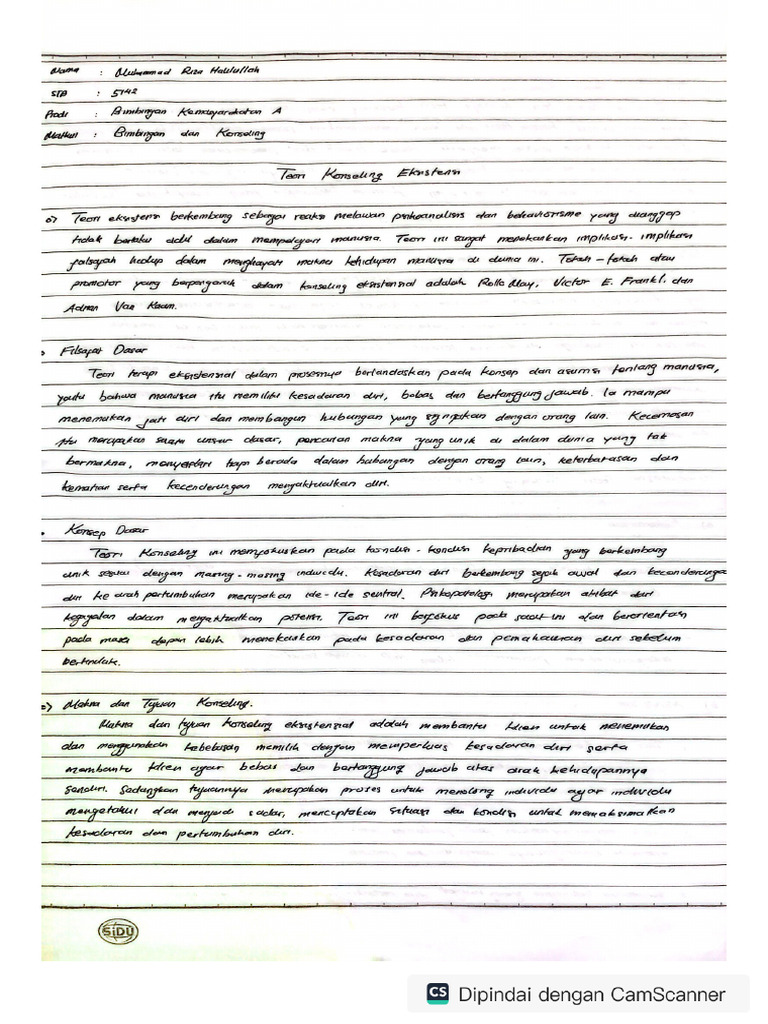 Nama : Muhammad Riza Halilullah
STB : 5142
Prodi : Bimbingan Kemasyarakatan A
Matkul : Bimbingan dan Konseling
Teori Konseling Eksistensi
Teori eksistensi berkembang sebagai reaksi melawan psikoanalisis dan behaviorisme yang dianggap
tidak berlaku adil dalam mempelajari manusia. Teori ini sangat menekankan implikasi-implikasi
falsafah hidup dalam menghayati makna kehidupan manusia di dunia ini. Tokoh-tokoh atau
promotor yang berpengaruh dalam konseling eksistensial adalah Rollo May, Victor E. Frankl, dan
Adrian Van Kaam.
Filsafat Dasar
Teori terapi eksistensial dalam prosesnya berlandaskan pada konsep dan asumsi tentang manusia,
yaitu bahwa manusia itu memiliki kesadaran diri, bebas dan bertanggung jawab. Ia mampu
menemukan jati diri dan membangun hubungan yang signifikan dengan orang lain. Kecemasan
itu merupakan suatu unsur dasar, pencarian makna yang unik di dalam dunia yang tak
bermakna, menyendiri tapi berada dalam hubungan dengan orang lain, keterbatasan dan
kematian serta kecenderungan mengaktualkan diri.
Konsep Dasar
Teori Konseling ini memfokuskan pada kondisi-kondisi kepribadian yang berkembang
unik sesuai dengan masing-masing individu. Kesadaran diri berkembang sejak awal dan kecenderungan
diri ke arah pertumbuhan merupakan ide-ide sentral. Psikopatologi merupakan akibat dari
kegagalan dalam mengaktualkan potensi. Teori ini berfokus pada saat ini dan berorientasi
pada masa depan lebih menekankan pada kesadaran dan pemahaman diri sebelum
bertindak.
=> Makna dan Tujuan Konseling.
Makna dan tujuan konseling eksistensial adalah membantu klien untuk menemukan
dan menggunakan kebebasan memilih dengan memperluas kesadaran diri serta
membantu klien agar bebas dan bertanggung jawab atas arah kehidupannya
sendiri. Sedangkan tujuannya merupakan proses untuk menolong individu agar individu
mengetahui dan menjadi sadar, menciptakan situasi dan kondisi untuk memaksimalkan
kesadaran dan pertumbuhan diri.
SiDU
CS Dipindai dengan CamScanner